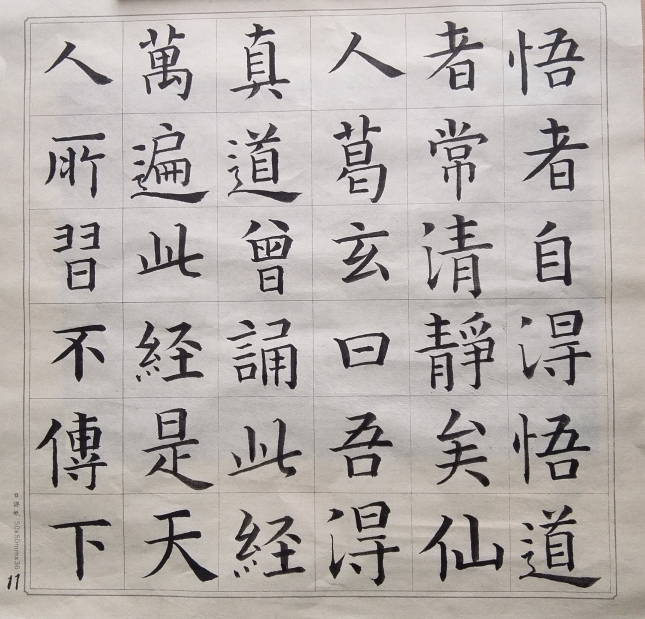 悟者自得悟道
者常清靜矣仙
人葛玄曰吾得
真道曾誦此経
萬遍此経是天
人所習不傳下
11